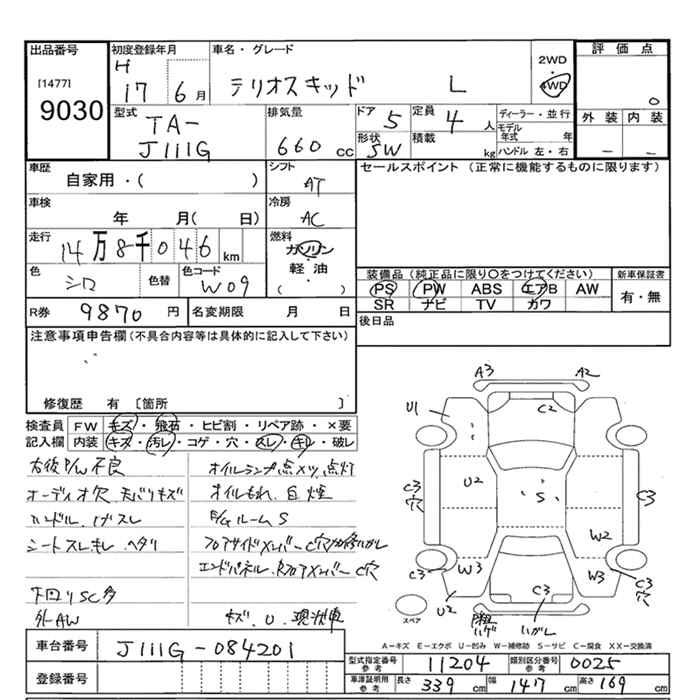 出品番号 初度登録年月 車名・グレード 評価点
[1477] H 2WD
9030 17 6月 テリオスキッド L ・4WD 0
型式 排気量 ドア 5 定員 4人 ディーラー・並行 外装 内装
TA- モデル年式 年
J111G 660 cc 形状 SW 積載 kg ハンドル 左・右 - -
車歴 シフト セールスポイント (正常に機能するものに限ります)
自家用・( ) AT
車検 冷房
年 月( 日) AC
走行 燃料
14万8千046 km ガソリン
・
軽油
色 色替 色コード ( )
シロ W09
装備品(純正品に限り○をつけてください) 新車保証書
PS PW ABS エアB AW 有・無
SR ナビ TV カワ
R券 9870円 名変期限 月 日
後日品
注意事項申告欄(不具合内容等は具体的に記入して下さい)
修復歴 有 〔箇所 〕
検査員 FW キズ・飛石・ヒビ割・リペア跡・×要
記入欄 内装 キズ・汚レ・コゲ・穴・スレ・キレ・破レ
右後P/W不良 オイルランプ点メツ,点灯
オーディオ穴 天バリキズ オイルもれ,白煙
ハンドル, スレ E/Gルーム S
シートスレキレ ヘタリ フロアサイドメンバーC穴
エンドパネル, メンバーC穴
下回りSC多
外AW キズ.U.現状車
A3 A2
U1 C2
U2 S
C3穴 C3
W2
C3 W3 W3 C3穴
U2 C3
スペア
ハガレ ハガレ
A―キズ E―エクボ U―凹み W―補修跡 S―サビ C―腐食 XX―交換済
車台番号 J111G-084201
型式指定番号 参考 11204 類別区分番号 参考 0025
登録番号
車庫証明用 参考 長さ 339cm 幅 147cm 高さ 169cm